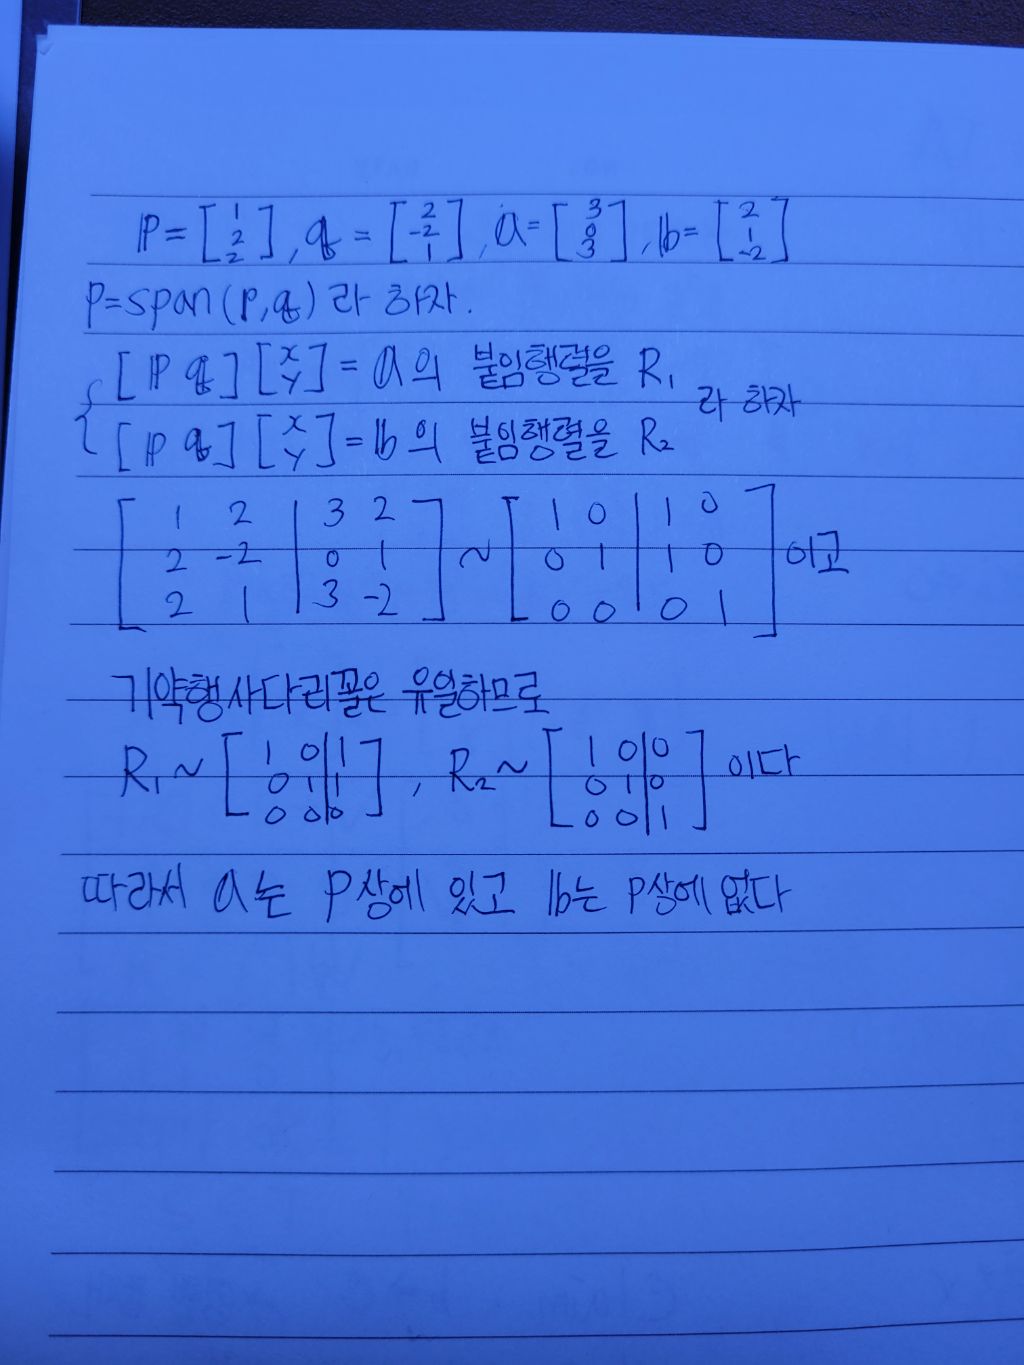 ℙ = [1 2 2], 𝕢 = [2 -2 1], 𝕒 = [3 0 3], 𝕓 = [2 1 -2]
P=span(ℙ,𝕢) 라 하자.
[ℙ 𝕢][x y] = 𝕒의 붙임행렬을 R₁
라 하자
[ℙ 𝕢][x y] = 𝕓의 붙임행렬을 R₂
[1 2 | 3 2
2 -2 | 0 1
2 1 | 3 -2] ~ [1 0 | 1 0
0 1 | 1 0
0 0 | 0 1] 이고
기약행사다리꼴은 유일하므로
R₁ ~ [1 0 | 1
0 1 | 1
0 0 | 0], R₂ ~ [1 0 | 0
0 1 | 0
0 0 | 1] 이다
따라서 𝕒는 P상에 있고 𝕓는 P상에 없다